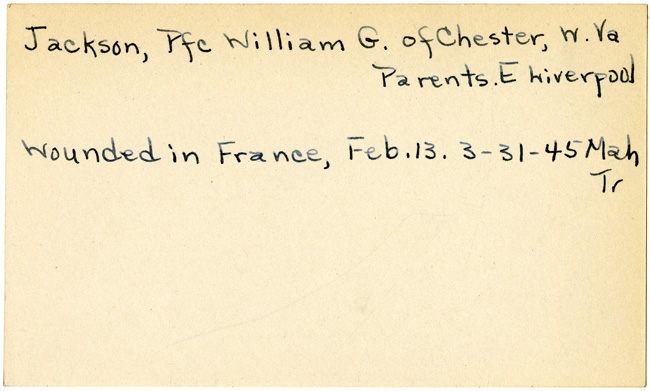 Jackson, Pfc William G. of Chester, W. Va
Parents. E Liverpool
Wounded in France, Feb. 13. 3-31-45 Mah
Tr